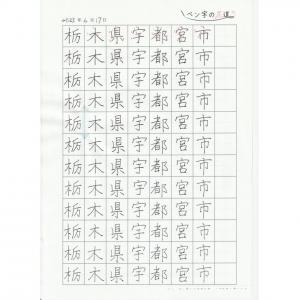 ペン字の
6月17日
栃木県宇都宮市
栃木県宇都宮市
栃木県宇都宮市
栃木県宇都宮市
栃木県宇都宮市
栃木県宇都宮市
栃木県宇都宮市
栃木県宇都宮市
栃木県宇都宮市
栃木県宇都宮市
栃木県宇都宮市
栃木県宇都宮市